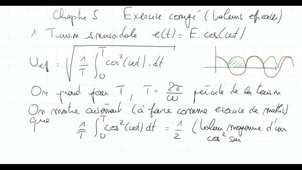 Chapitre 5 Exercice corrigé (Valeurs efficaces)
1 Tension sinusoïdale e(t) = E.cos(ωt)
Veff = √(1/T ∫₀ᵀ cos²(ωt).dt)
On prend pour T, T = 2π/ω période de la tension
On montre aisément (à faire comme exercice de maths)
que 1/T ∫₀ᵀ cos²(ωt)dt = 1/2 (Valeur moyenne d'un
cos² sur